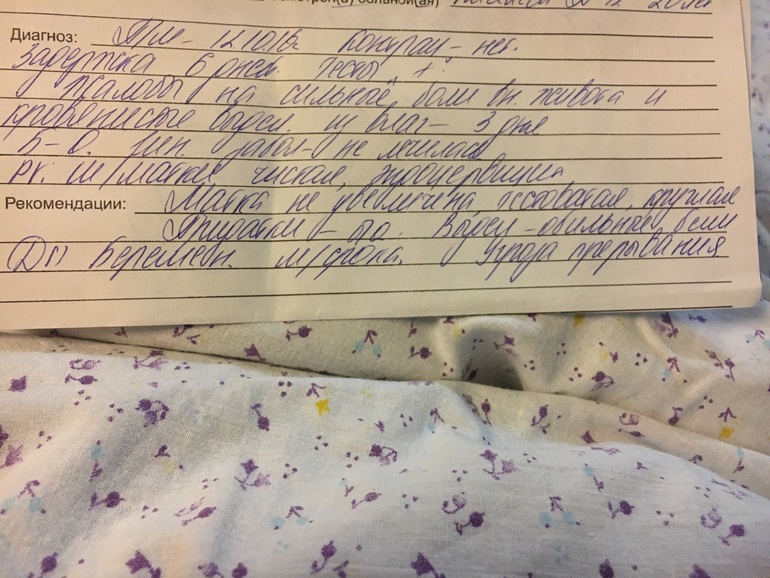 смотрен(а) больной(ая)
Диагноз: ПМ - 12.10.16 Контрац - нет.
Задержка 6 дней. Тесты "+"
Жалобы на сильные боли вн. живота и
кровянистые выдел. из влаг - 3 дня
Б-0. Гин. забол - не лечилась
Ш/матки чистая,
Рекомендации: Матка не увеличена округлая
Придатки - б/о. Выдел - обильные
DS) Беремен. м/срока. Угроза прерывания